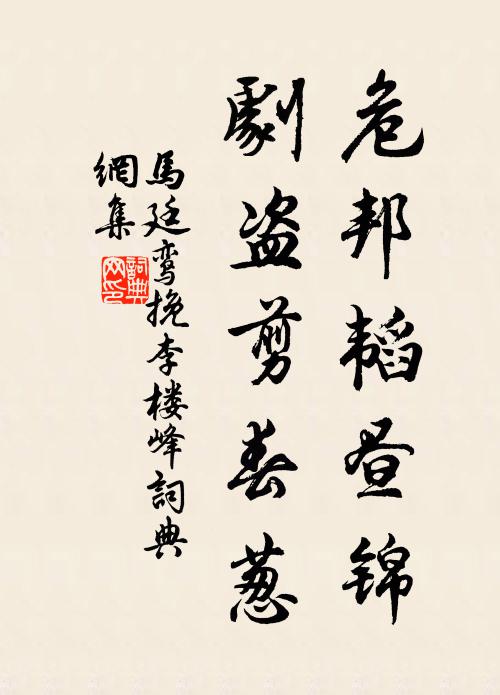 危邦韬昼锦
劇盗剪春葱
馬廷鸾挽李楼峰詞典
網集
詞典网印